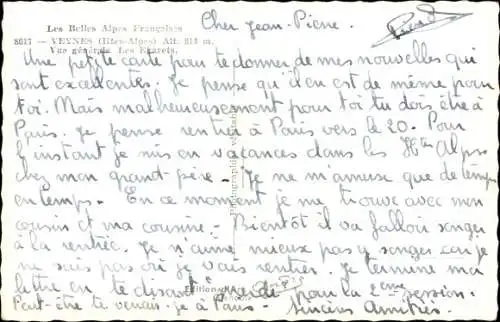 Les Belles Alpes Françaises
8017 — VEYNES (Htes-Alpes) Alt. 812 m.
Vue générale Les Eyarets.
Cher Jean-Pierre.
Une petite carte pour te donner de mes nouvelles qui
sont excellentes. Je pense qu'il en est de même pour
toi. Mais malheureusement pour toi tu dois être à
Paris. Je pense rentrer à Paris vers le 20. Pour
l'instant je suis en vacances dans les Htes Alpes
chez mon grand-père. Je ne m'amuse que de temps
en temps. En ce moment je me trouve avec mon
cousin et ma cousine. Bientôt il va falloir songer
à la rentrée. Je n'aime mieux pas y songer car je
ne sais pas où je vais rentrer. Je termine ma
lettre en te disant pour la 2ème session.
Peut-être te verrai-je à Paris. Sincères Amitiés.
Photographie véritable